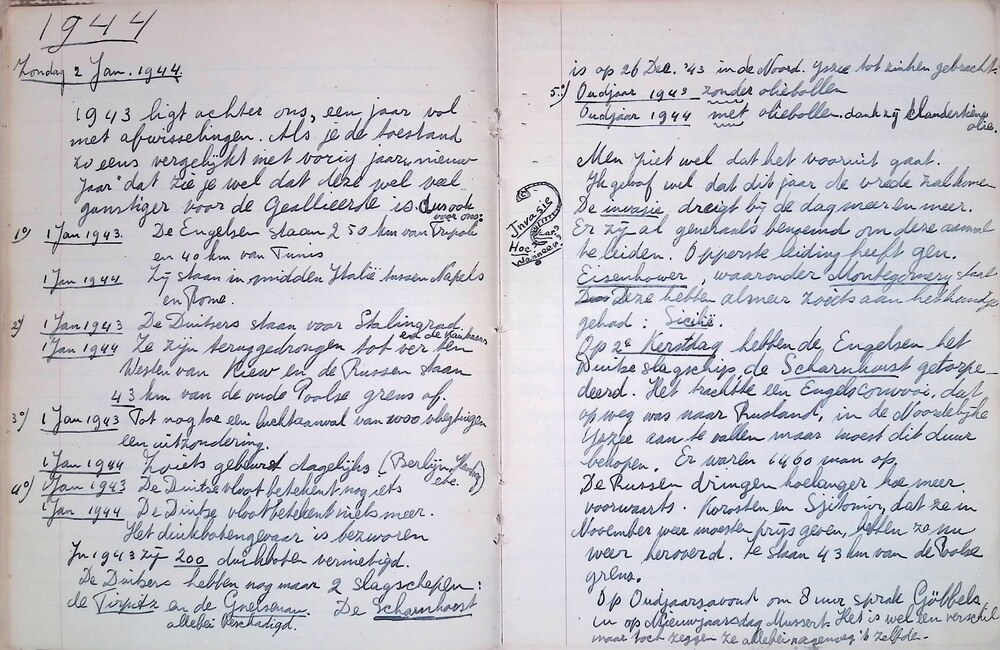 1944
Zondag 2 Jan. 1944.
1943 ligt achter ons, een jaar vol
met afwisselingen. Als je de toestand
zo eens vergelijkt met vorig jaar "nieuw
jaar" dat zie je wel dat deze wel veel
gunstiger voor de Geallieerde is dus ook
voor ons:
1°) 1 Jan 1943. De Engelsen staan 250 km van Tripoli
en 40 km van Tunis
1 Jan 1944 Zij staan in midden Italië tussen Napels
en Rome.
2°) 1 Jan 1943 De Duitsers staan voor Stalingrad.
en de Kaukasus
1 Jan 1944 Ze zijn teruggedrongen tot ver ten
Westen van Kiew en de Russen staan
43 km van de oude Poolse grens af.
3°) 1 Jan 1943 Tot nog toe een luchtaanval van 2000 vliegtuigen
een uitzondering.
1 Jan 1944 Zoiets gebeurt dagelijks (Berlijn, Hamburg
etc.)
4°) 1 Jan 1943 De Duitse vloot betekent nog iets
1 Jan 1944 De Duitse vloot betekent niets meer.
Het duikbotengevaar is bezworen
In 1943 zijn 200 duikboten vernietigd.
De Duitsers hebben nog maar 2 slagschepen:
de Tirpitz en de Gneisenau. De Scharnhorst
allebei beschadigd.
is op 26 Dec. '43 in de Noord. IJszee tot zinken gebracht.
5°) Oudjaar 1943 zonder oliebollen
Oudjaar 1944 met oliebollen dankzij klandestiene
olie
Men ziet wel dat het vooruit gaat.
Ik geloof wel dat dit jaar de vrede zal komen
De invasie dreigt bij de dag meer en meer.
Er zijn al generaals benoemd om deze aanval
te leiden. Opperste leiding heeft gen.
Eisenhower, waaronder Montegomery staat
Deze hebben al meer zoiets aan het handje
gehad: Sicilië.
Op 2e Kerstdag hebben de Engelsen het
Duitse slagschip, de Scharnhorst getorpe-
deerd. Het trachtte een Engels convooi, dat
op weg was naar Rusland, in de Noordelijke
IJszee aan te vallen maar moest dit duur
bekopen. Er waren 1460 man op
De Russen dringen hoelanger hoe meer
voorwaarts. Korosten en Sjitomir, dat ze in
November weer moesten prijs geven, hebben ze nu
weer heroverd. Ze staan 43 km van de Poolse
grens.
Op Oudjaarsavond om 8 uur sprak Göbbels
en op Nieuwjaarsdag Mussert. Het is wel een verschil
maar toch zeggen ze allebei nagenoeg 't zelfde.-
Invasie
Hoe
Waar
Wanneer?